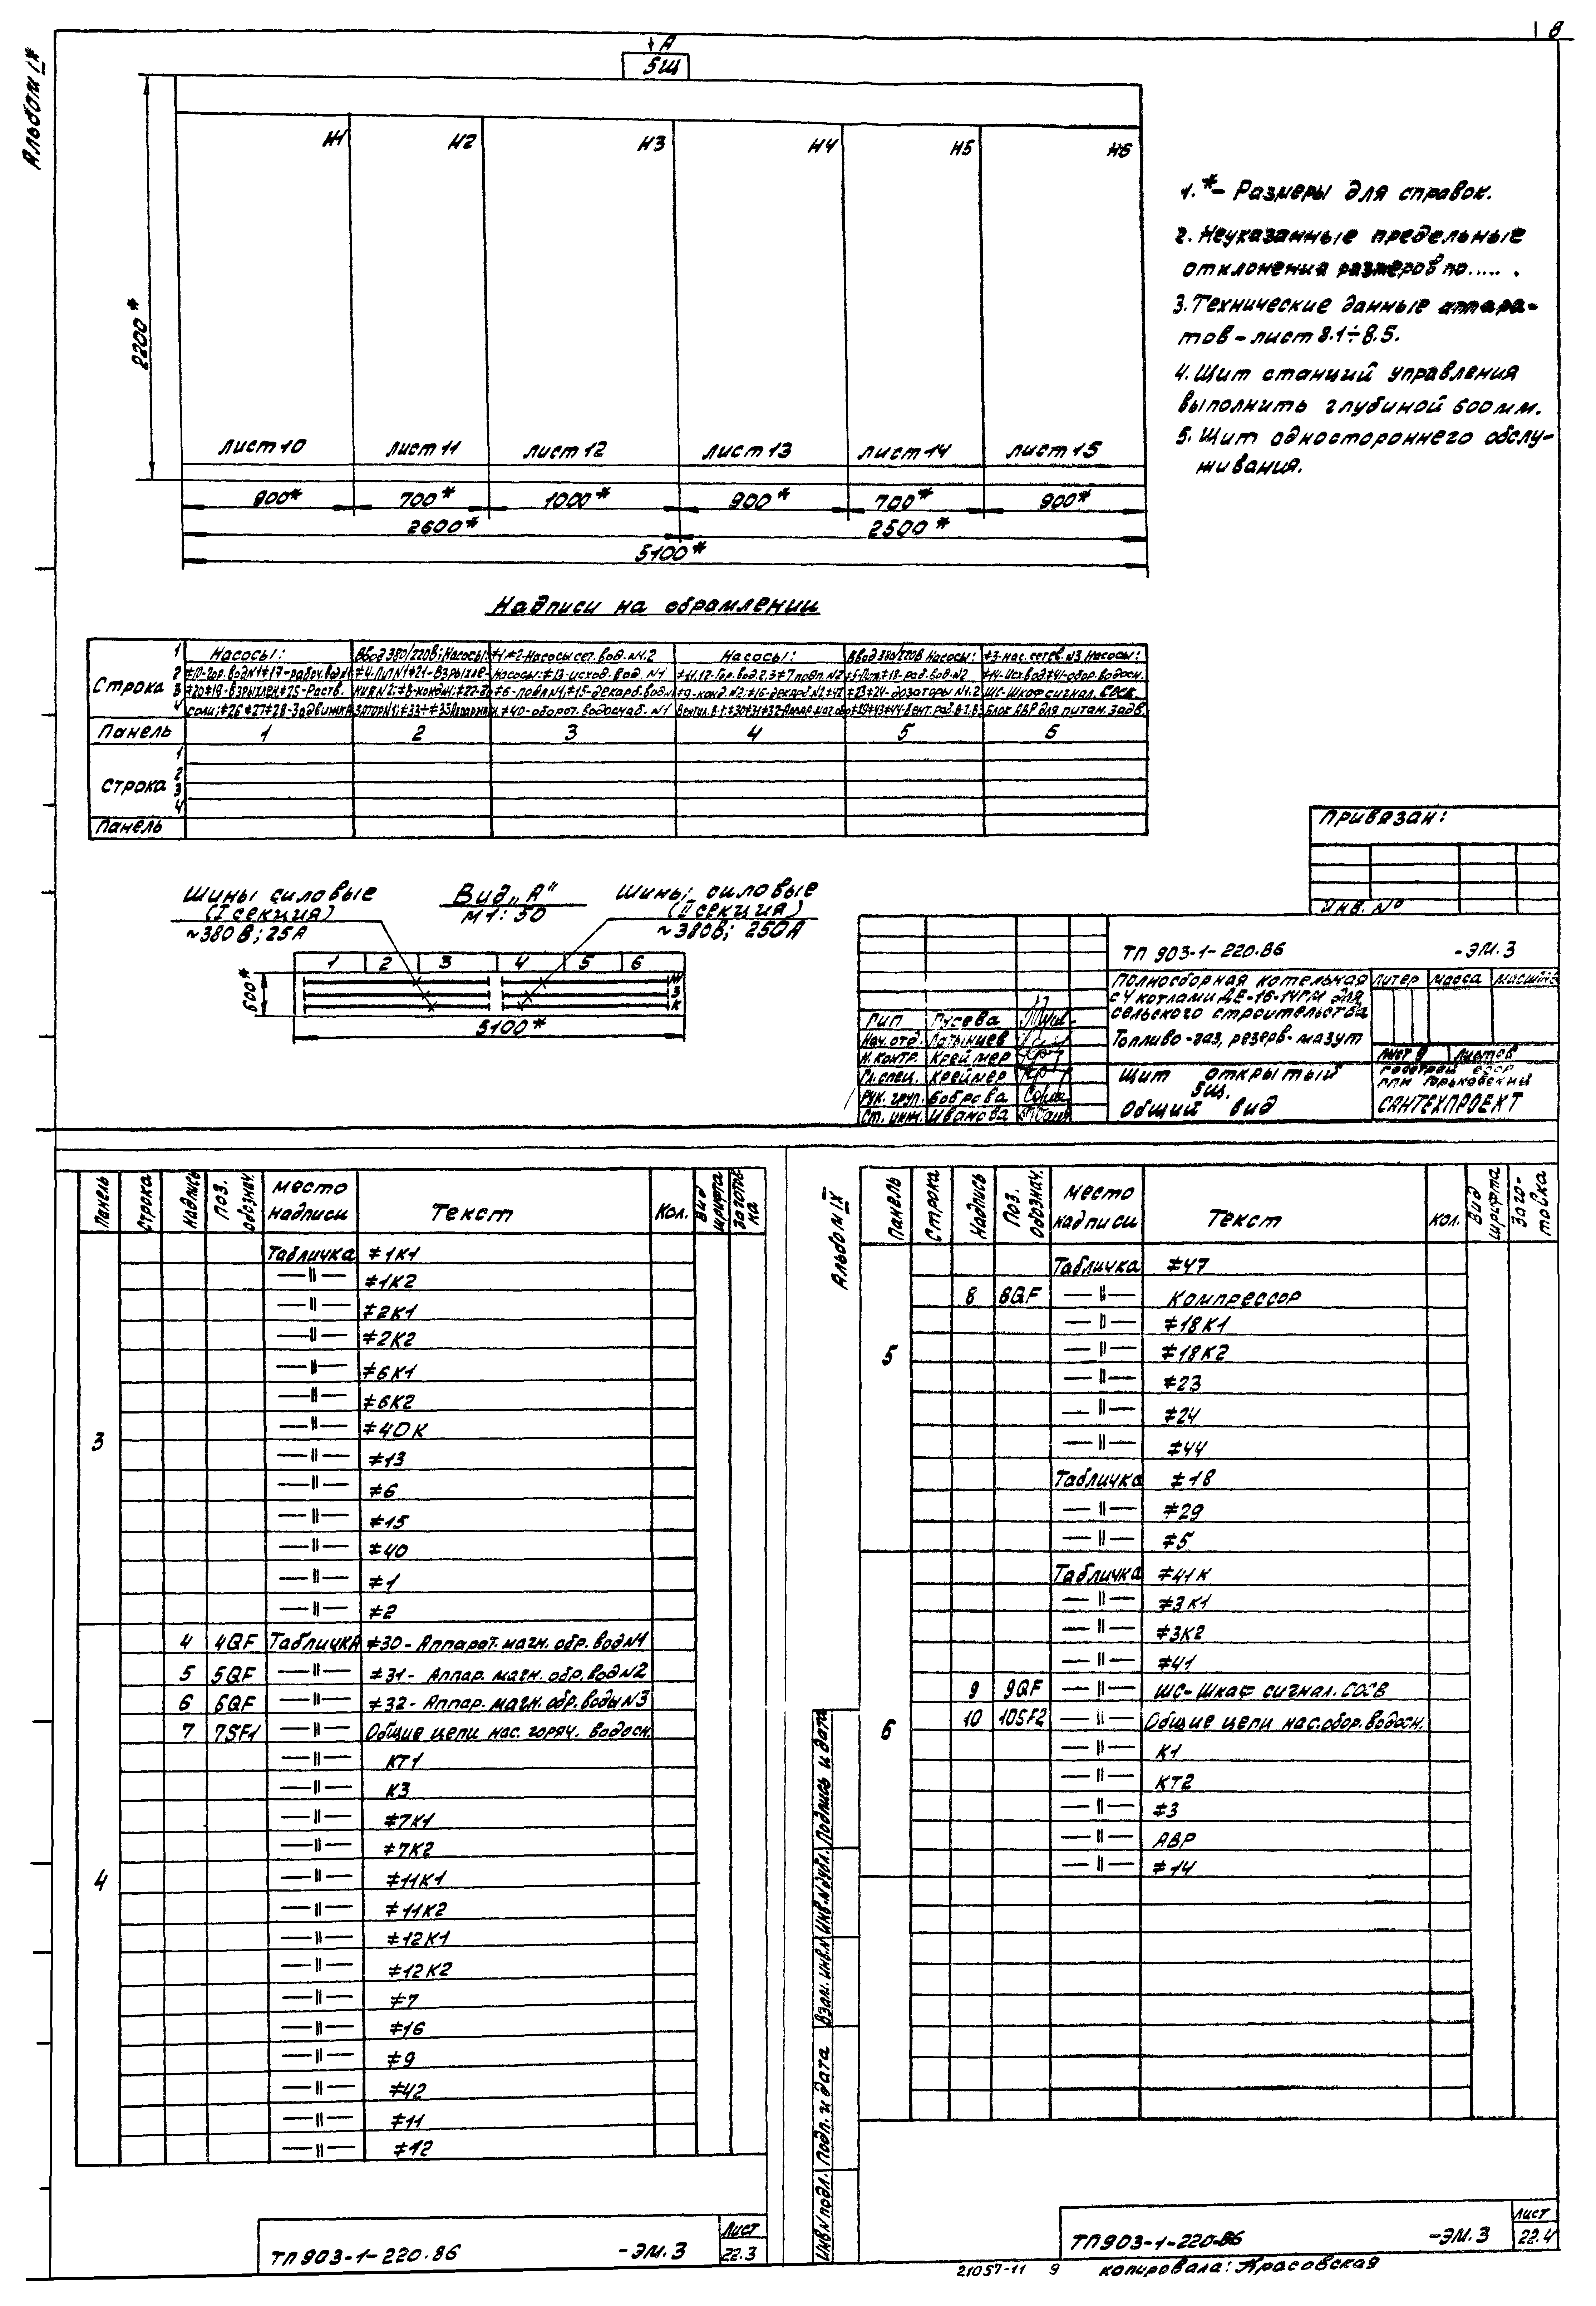 8
Альбом IX
А
5Щ
Н1 Н2 Н3 Н4 Н5 Н6
2200*
лист 10 лист 11 лист 12 лист 13 лист 14 лист 15
900* 700* 1000* 900* 700* 900*
2600* 2500*
5100*
1.*- Размеры для справок.
2. Неуказанные предельные
отклонения размеров по..... .
3. Технические данные аппара-
тов - лист 8.1÷8.5.
4. Щит станций управления
выполнить глубиной 600мм.
5. Щит одностороннего обслу-
живания.
Надписи на обрамлении
Строка 1 2 3 4
Насосы: Ввод 380/220В; Насосы: ≠1≠2-Насосы сет. вод. N1.2 Насосы: Ввод 380/220В Насосы: ≠3-нас. сетев. N3. Насосы:
≠10-Гор. вод N1 ≠17-рабоч. вод N1 ≠4-Пит N1 ≠21-Взрыхле- Насосы: ≠13-исход. вод. N1 ≠11,12-Гор. вод. 2,3 ≠7 подп. N2 ≠5-Пит. ≠18-раб. вод. N2 ≠14-Исх. вод. ≠41-обор. водосн.
≠20 ≠19-Взрыхлен. ≠25-Раств. ≠6-подп N1, ≠15-декарб. вод N1 ≠9-конд. N2; ≠16-декарб N2 ≠42 ≠23 ≠24-дозаторы N1.2 ШС-Шкаф сигнал.
соли; ≠26 ≠27 ≠28-Задвижка ≠40-оборот. водоснаб. N1 Блок АВР для питан. задв.
Панель 1 2 3 4 5 6
Строка 1 2 3 4
Панель
Привязан:
Инв. №
Шины силовые
(I секция)
~380В; 25А
Вид „А"
М 1:50
Шины силовые
(II секция)
~380В; 250А
1 2 3 4 5 6
Ж
З
К
600*
5100*
ТП 903-1-220.86 -ЭМ.3
Полносборная котельная
с 4 котлами ДЕ-16-14ГМ для
сельского строительства
Топливо-газ, резерв-мазут
Литер Масса Масштаб
Лист 9 Листов
Щит открытый
5Щ.
Общий вид
Госстрой СССР
ГПИ Горьковский
САНТЕХПРОЕКТ
ГИП Гусева
Нач. отд. Латынцев
Н. контр. Креймер
Гл. спец. Креймер
Рук. груп. Боброва
Ст. инж. Иванова
Панель Строка Надпись Поз. обознач. Место надписи Текст Кол. Вид шрифта Заготов ка
3
Табличка ≠1К1
—"— ≠1К2
—"— ≠2К1
—"— ≠2К2
—"— ≠6К1
—"— ≠6К2
—"— ≠40К
—"— ≠13
—"— ≠6
—"— ≠15
—"— ≠40
—"— ≠1
—"— ≠2
4
4 4QF Табличка ≠30-Аппарат. магн. обр. вод N1
5 5QF —"— ≠31- Аппар. магн. обр. вод N2
6 6QF —"— ≠32-Аппар. магн. обр. воды N3
7 7SF1 —"— Общие цепи нас. горяч. водосн.
—"— КТ1
—"— К3
—"— ≠7К1
—"— ≠7К2
—"— ≠11К1
—"— ≠11К2
—"— ≠12К1
—"— ≠12К2
—"— ≠7
—"— ≠16
—"— ≠9
—"— ≠42
—"— ≠11
—"— ≠12
ТП903-1-220.86 -ЭМ.3
Лист
22.3
Альбом IX
Панель Строка Надпись Поз. обознач. Место надписи Текст Кол. Вид шрифта Заго- товка
5
Табличка ≠47
8 8QF —"— Компрессор
—"— ≠18К1
—"— ≠18К2
—"— ≠23
—"— ≠24
—"— ≠44
Табличка ≠18
—"— ≠29
—"— ≠5
6
Табличка ≠41К
—"— ≠3К1
—"— ≠3К2
—"— ≠41
9 9QF —"— ШС-Шкаф сигнал.
10 10SF2 —"— Общие цепи нас. обор. водосн.
—"— К1
—"— КТ2
—"— ≠3
—"— АВР
—"— ≠14
Инв. N подл. Подп. и дата Взам. инв. N Инв. N дубл. Подпись и дата
ТП903-1-220.86 -ЭМ.3
Лист
22.4
21057-11 9 копировала: Красовская